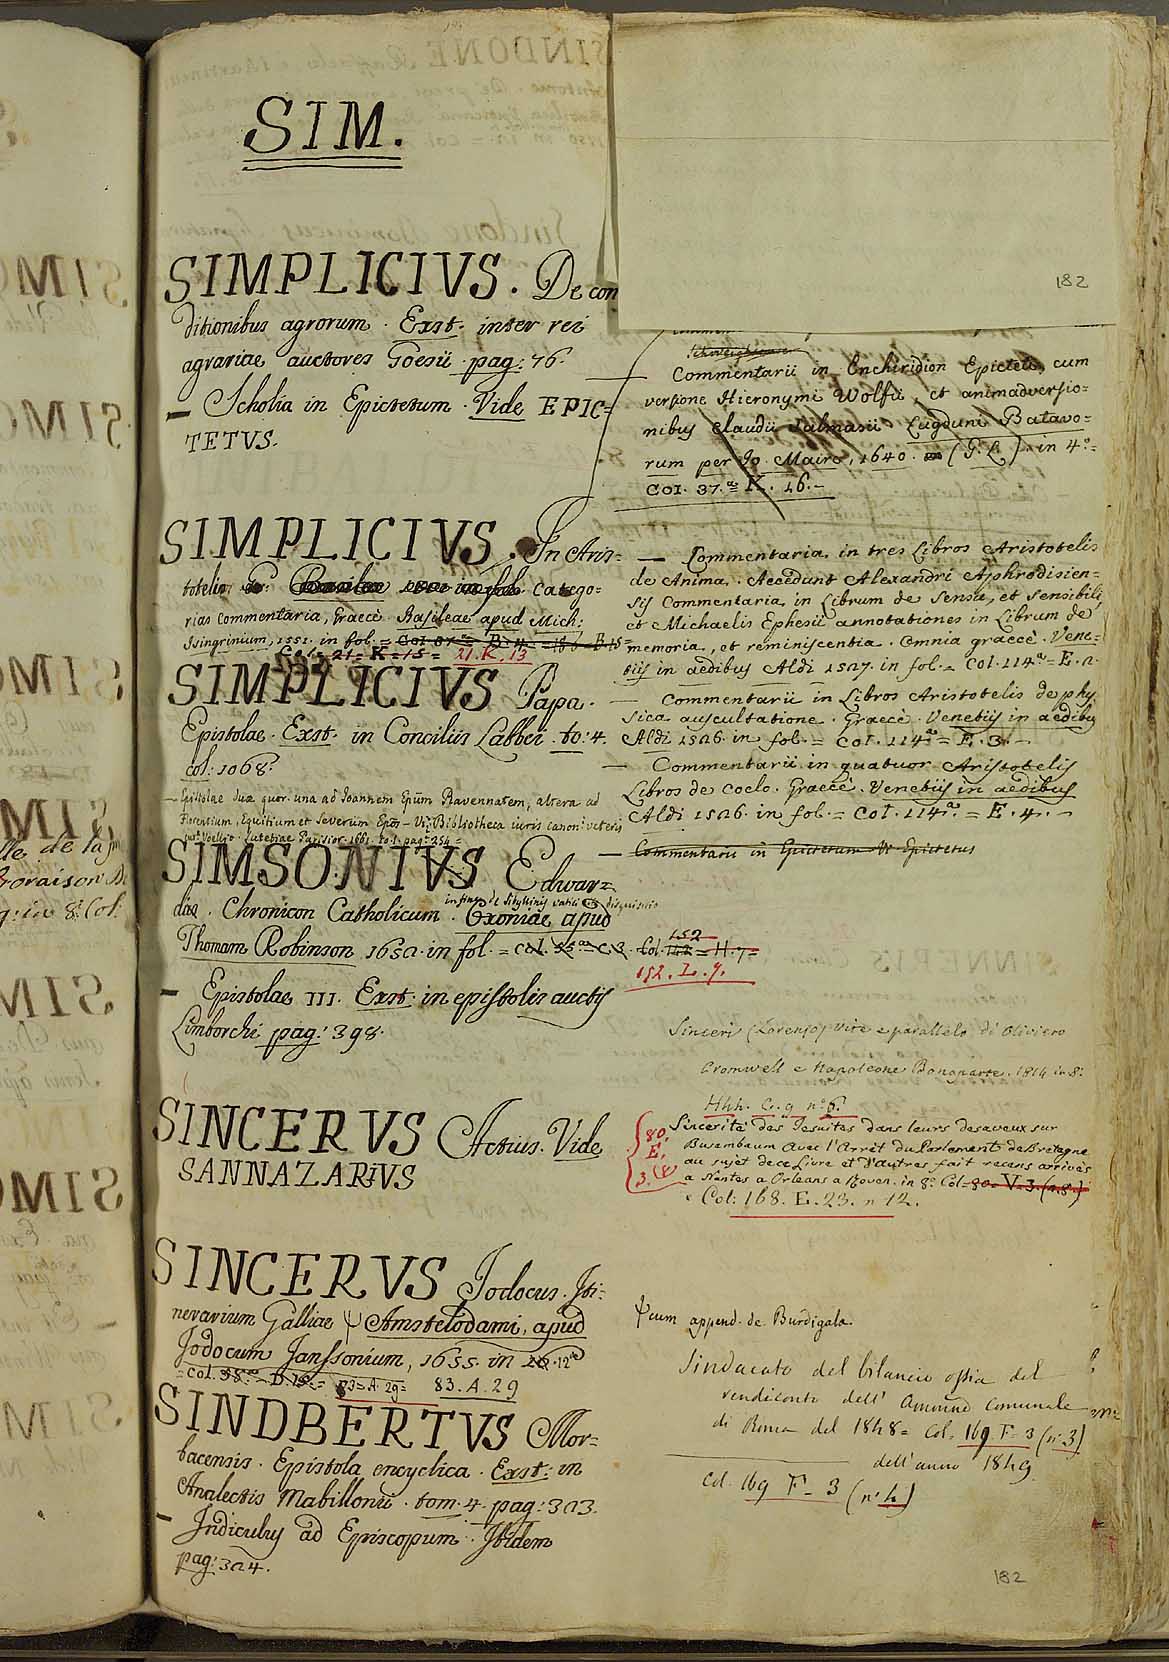 SIM.
SIMPLICIVS. De con
ditionibus agrorum. Exst. inter rei
agrariae auctores Goesii. pag: 76.
— Scholia in Epictetum. Vide EPIC=
TETVS.
SIMPLICIVS. In Aris=
totelis Catego=
rias commentaria, Graecè. Basileae apud Mich:
Isingrinium, 1551. in fol. =
Col. 21 = K = 15 = 21. K. 13
SIMPLICIVS Papa.
Epistolae. Exst. in Conciliis Labbei. to: 4.
col: 1068.
— Epistolae duae quor. una ad Joannem Epūm Ravennatem, altera ad
Florentium, Equitium et Severum Epōs — Vid: Bibliotheca iuris canon: veteris
Voellio. Lutetiae Parisior. 1661. to. 1. pag: 254 =
SIMSONIVS Edwar=
dus. Chronicon Catholicum. Oxoniae apud
in fine de Sibyllinis vatic. disquisitio
Thomam Robinson 1652. in fol. = Col. 142 = H. 7 =
152
152. L. 9.
— Epistolae III. Exst. in epistolis auctis
Limborchi pag: 398.
SINCERVS Actius. Vide
SANNAZARIVS
SINCERVS Jodocus. Iti=
nerarium Galliae Ψ Amstelodami, apud
Jodocum Janssonium, 1655. in 12º
= Col. 83 = A. 29 = 83. A. 29
SINDBERTVS Mor=
bacensis. Epistola encyclica. Exst: in
Analectis Mabillonii. tom. 4. pag: 323.
— Indiculus ad Episcopum. Ibidem
pag: 324.
182
Schweighauser
— Commentarii in Enchiridion Epicteti, cum
versione Hieronymi Wolfii, et animadversio=
nibus Claudii Salmasii. Lugduni Batavo=
rum per Jo. Maire, 1640. (G. L.) in 4º =
Col. 37.ª = K. 16. —
— Commentaria in tres Libros Aristotelis
de Anima. Accedunt Alexandri Aphrodisien=
sis Commentaria in Librum de Sensu, et Sensibili,
et Michaelis Ephesii annotationes in Librum de
memoria, et reminiscentia. Omnia graecè. Vene=
tiis in aedibus Aldi 1527. in fol. = Col. 114ª = E. 2.
— Commentarii in Libros Aristotelis de phy
sica auscultatione. Graecè. Venetiis in aedibus
Aldi 1526. in fol. = Col. 114ª = E. 3. —
— Commentarii in quatuor Aristotelis
Libros de Coelo. Graecè. Venetiis in aedibus
Aldi 1526. in fol. = Col. 114ª = E. 4. —
— Commentarii in Epictetum V. Epictetus
Sinceri (Lorenzo) Vite e parallelo di Oliviero
Cromwell e Napoleone Bonaparte. 1814 in 8º
Hhh. C. g nº 6.
80.
E.
3.
Sincerité des Jesuites dans leurs desaveux sur
Busembaum avec l'Arrêt du Parlement de Bretagne
au sujet de ce Livre et d'autres fait recens arrivés
a Nantes a Orleans a Rouen. in 8º Col. 80 = V. 3. (n. 8.)
Col: 168. E. 23. n 12.
Ψ cum append. de Burdigala.
Sindacato del bilancio ossia del
rendiconto dell' Comunale
di Roma del 1848 = Col. 169 F-3 (nº 3)
dell'anno 1849
Col. 169 F-3 (nº 4)
182